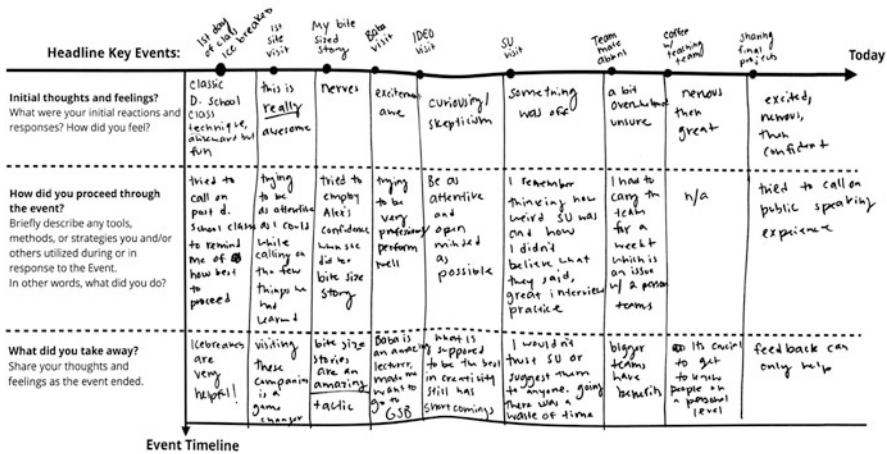 Headline Key Events:
1st day
of class
Ice breaker
1st
site
visit
My bite
sized
story
Baba
visit
IDEO
visit
SU
visit
Team
mate
absent
coffee
w/
teaching
team
sharing
final
projects
Today
Initial thoughts and feelings?
What were your initial reactions and
responses? How did you feel?
classic
D. School
class
technique,
awkward but
fun
this is
really
awesome
nerves
excitement
awe
curiousity/
skepticism
something
was off
a bit
overwhelmed
unsure
nervous
then
great
excited,
nervous,
then
confident
How did you proceed through
the event?
Briefly describe any tools,
methods, or strategies you and/or
others utilized during or in
response to the Event.
In other words, what did you do?
tried to
call on
past d.
school class
to remind
me of
how best
to
proceed
trying
to be
as attentive
as I could
while
calling on
the few
things he
had
learned
tried to
employ
Alex's
confidence
when she
did her
bite size
story
trying
to be
very
professional
perform
well
Be as
attentive
and
open
minded
as
possible
I remember
thinking how
weird SU was
and how
I didn't
believe what
they said,
great interview
practice
I had to
carry the
team
for a
week
which is
an issue
w/ 2 person
teams
n/a
tried to call on
public speaking
experience
What did you take away?
Share your thoughts and
feelings as the event ended.
Icebreakers
are
very
helpful!
visiting
these
companies
is a
game
changer
bite size
stories
are an
amazing
tactic
Baba is
an amazing
lecturer,
made me
want to
go to
GSB
what is
supposed
to be the best
in creativity
still has
shortcomings
I wouldn't
trust SU or
suggest them
to anyone. going
there was a
waste of time
bigger
teams
have
benefits
Its crucial
to get
to know
people on
a personal
level
feedback can
only help
Event Timeline